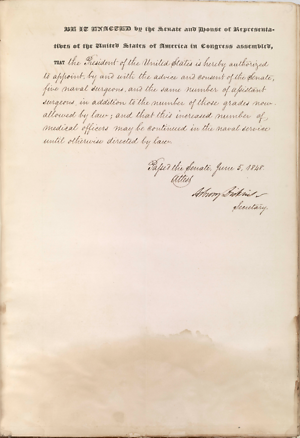 BE IT ENACTED by the Senate and House of Representa-
tives of the United States of America in Congress assembled,
THAT the President of the United States is hereby authorized
to appoint, by and with the advice and consent of the Senate,
five naval surgeons, and the same number of assistant
surgeons in addition to the number of those grades now
allowed by law; and that this increased number of
medical officers may be continued in the naval service
until otherwise directed by law.
Passed the Senate June 5, 1848.
Attest
Asbury Dickins
Secretary.